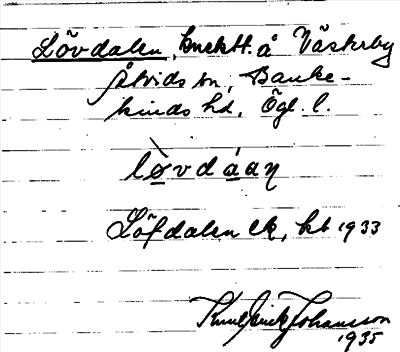 Lövdalen, knektt. å Västerby
Åtvids sn, Banke-
kinds hd, Ögl. l.
lø̀vdáaη
Löfdalen ek, kb 1933
Knut Johansson
1935